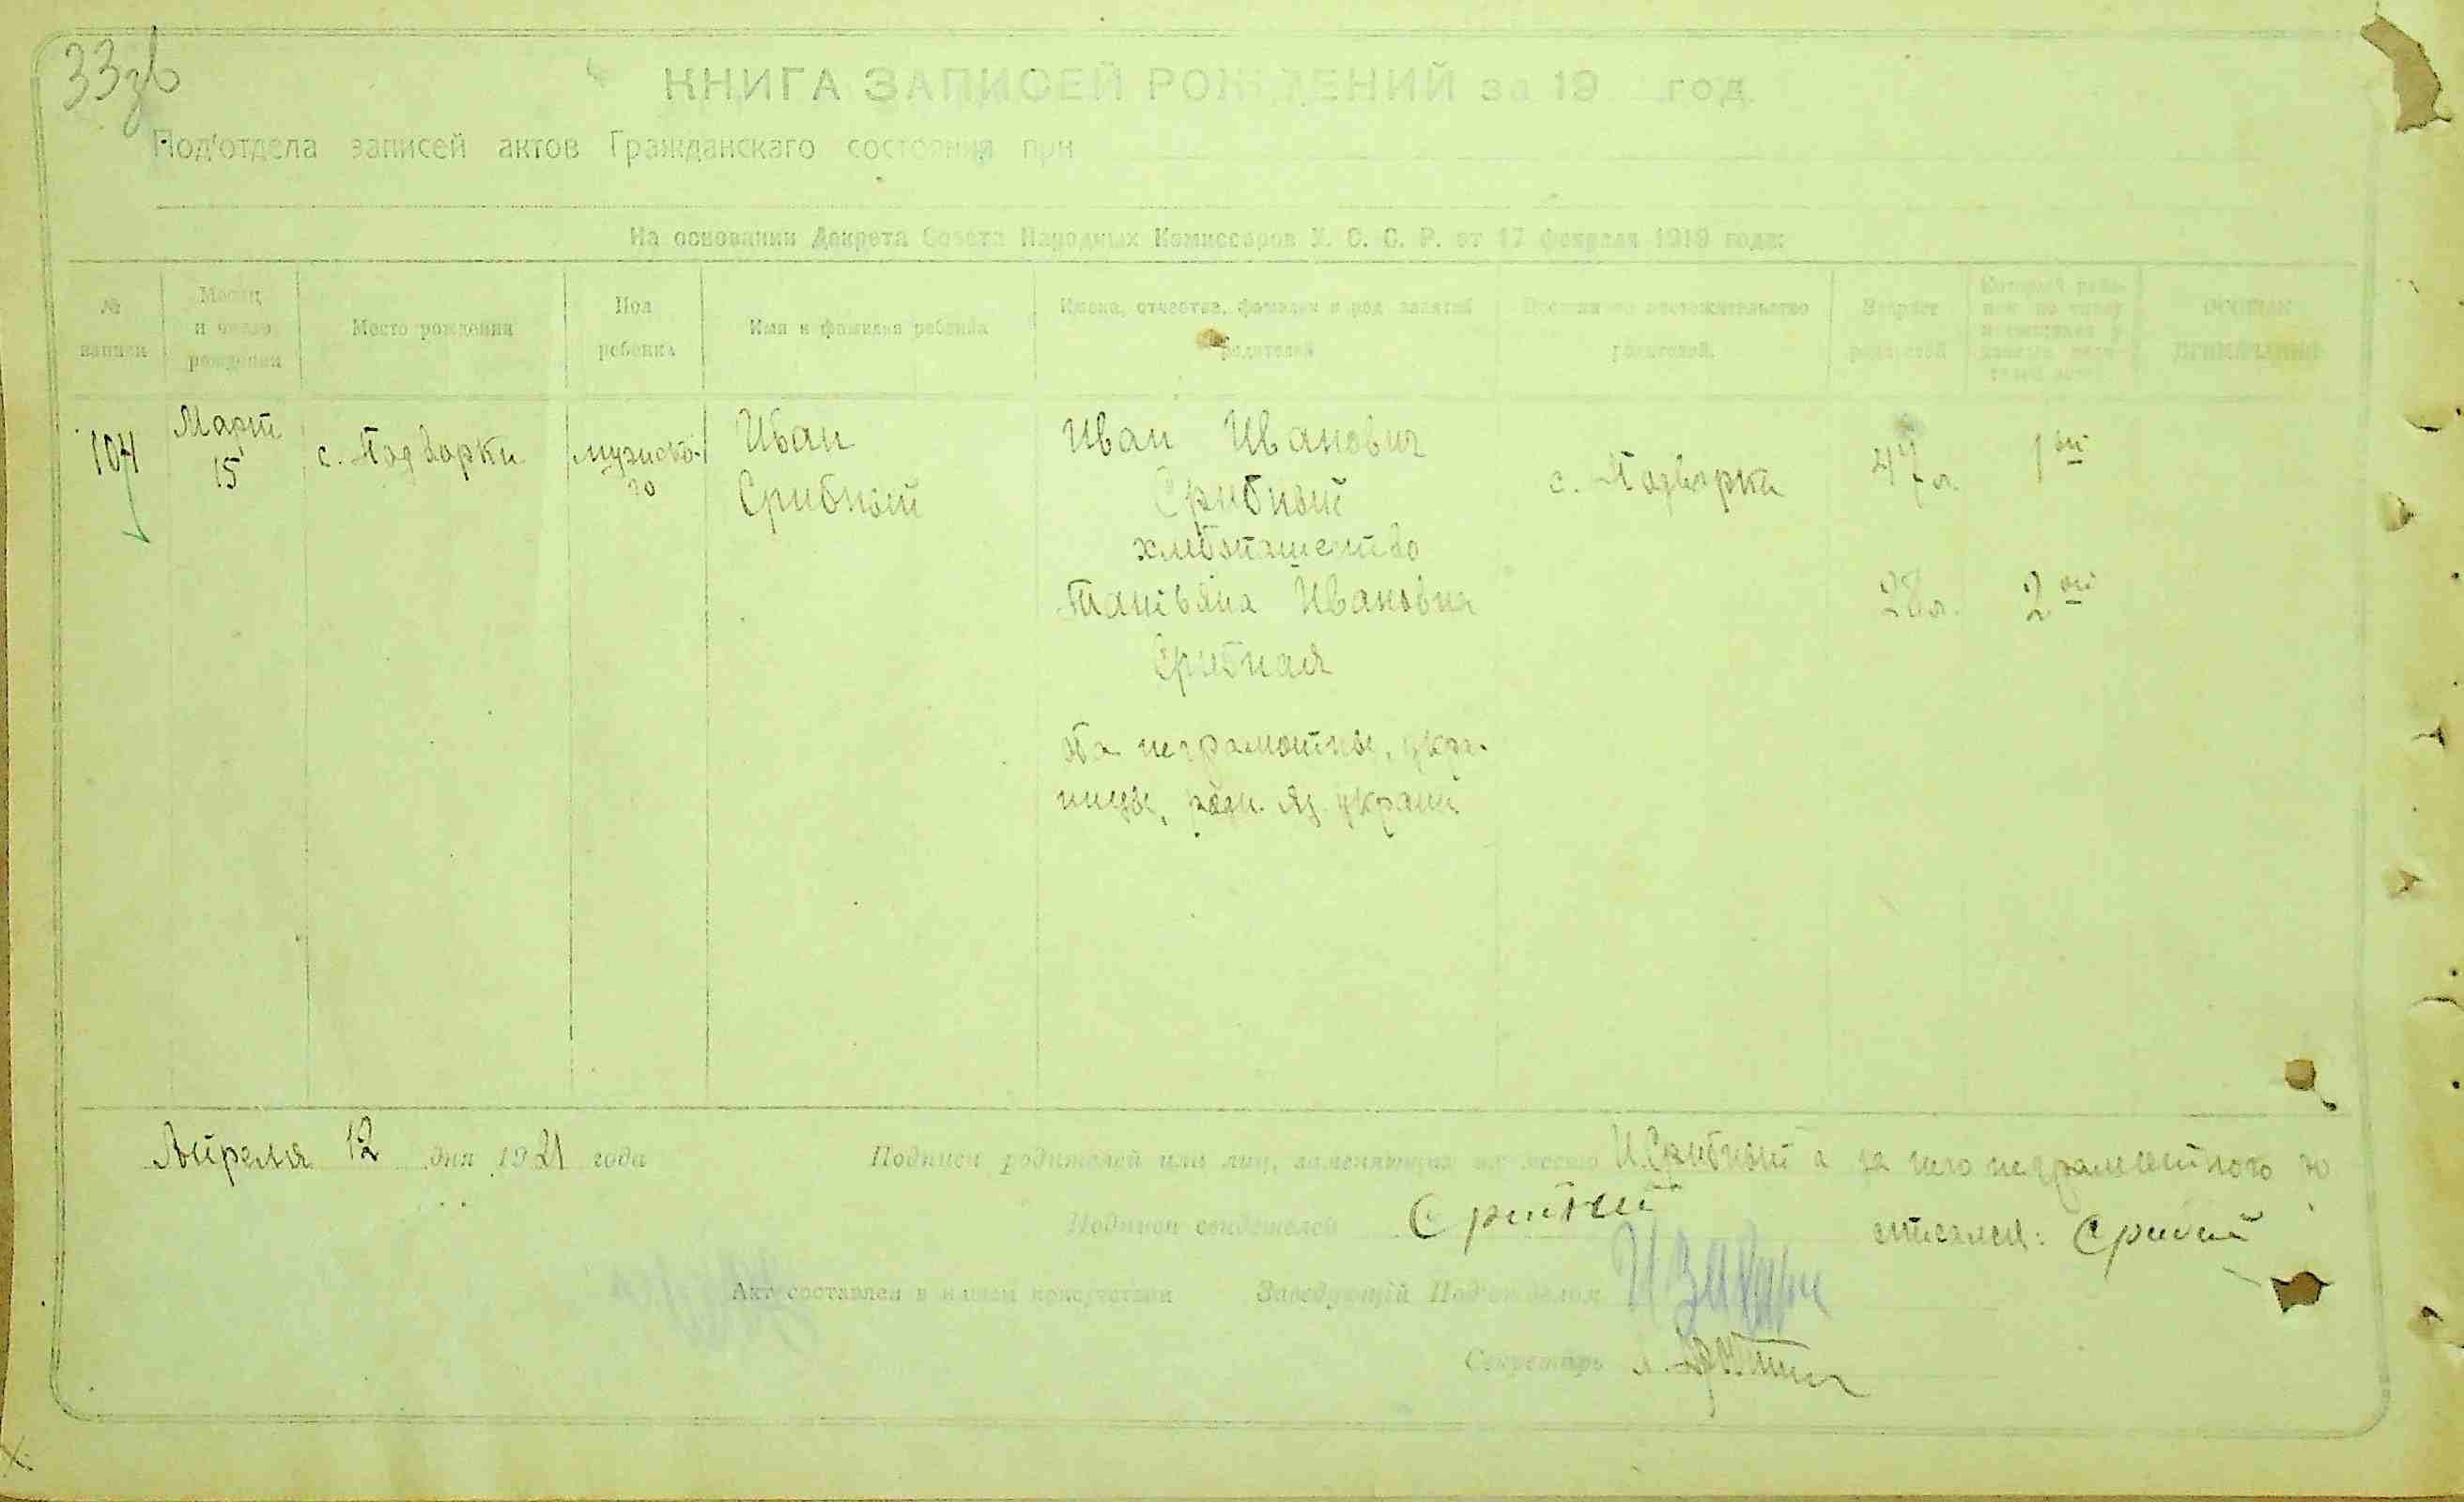 33зв
КНИГА ЗАПИСЕЙ РОЖДЕНИЙ за 19 год.
Под'отдела записей актов Гражданскаго состояния при
На основании Декрета Совета Народных Комиссаров У. С. С. Р. от 17 февраля 1919 года:
№ записи
Месяц и число рождения
Место рождения
Пол ребенка
Имя и фамилия ребенка
Имена, отчества, фамилии и род занятий родителей
Постоянное местожительство родителей
Возраст родителей
ОСОБЫЯ ПРИМЕЧАНИЯ
104
Март 15
с. Подворки
мужско-го
Иван
Срибный
Иван Иванович
Срибный
хлебопашество
Татьяна Ивановна
Срибная
оба неграмотны, укра-
инцы, разг. яз. украин
с. Подворки
47 л.
28 л.
1 ый
2 ой
Апреля 12 дня 1921 года
Подписи родителей или лиц, заменяющих их место И. Срибный а за него неграмотного ро
списался: Срибний
Подписи свидетелей Срибний
Акт составлен в нашем присутствии
Заведующій Под'отделом
Секретарь